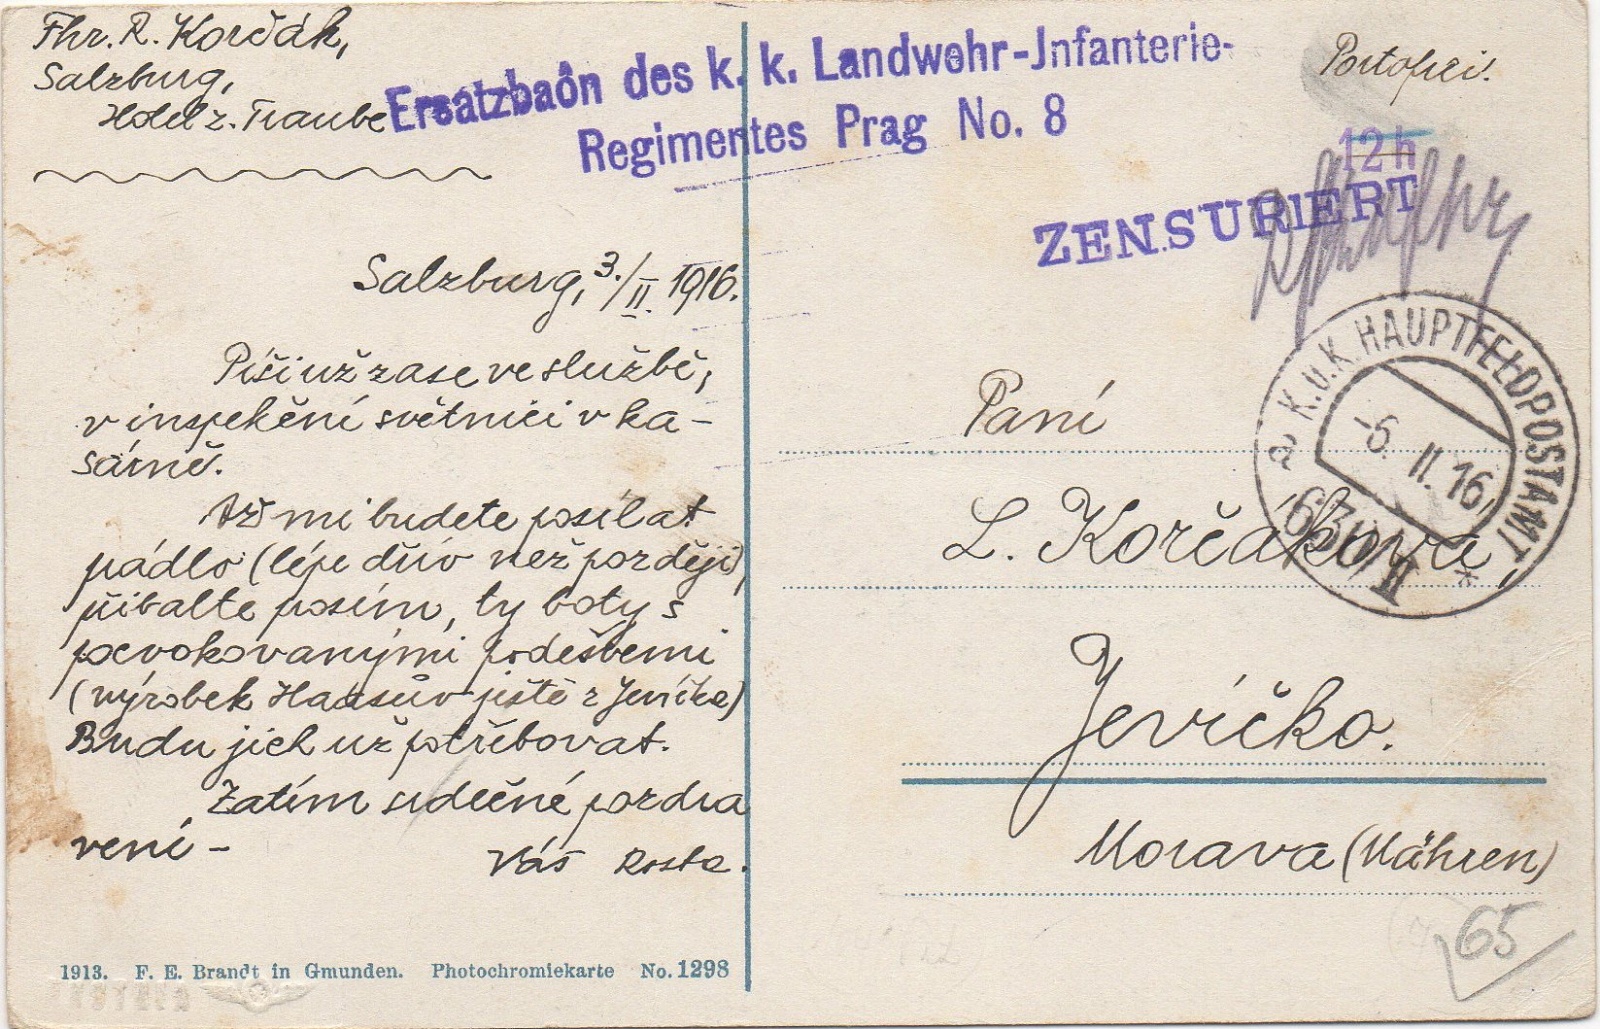 Fhr. R. Korčák,
Salzburg,
Hotel z. Traube
Ersatzbaôn des k. k. Landwehr-Jnfanterie-
Regimentes Prag No. 8
Portofrei.
12 h
ZENSURIERT
Salzburg, 3./II. 1916.
Píši už zase ve službě,
v inspekční světnici v ka-
sárně.
Až mi budete posílat
pádlo (lépe dřív než později),
přibalte prosím, ty boty s
pevokovanými podešvemi
(výrobek Haasův ještě z Jevíčka)
Budu jich už potřebovat.
Zatím srdečné pozdra
vení -
Váš Rosta.
1913. F. E. Brandt in Gmunden. Photochromiekarte No. 1298
K.u.K. HAUPTFELDPOSTAMT
a
-6. II. 16
*
II
Paní
L. Korčáková,
Jevíčko.
Morava (Mähren)
65